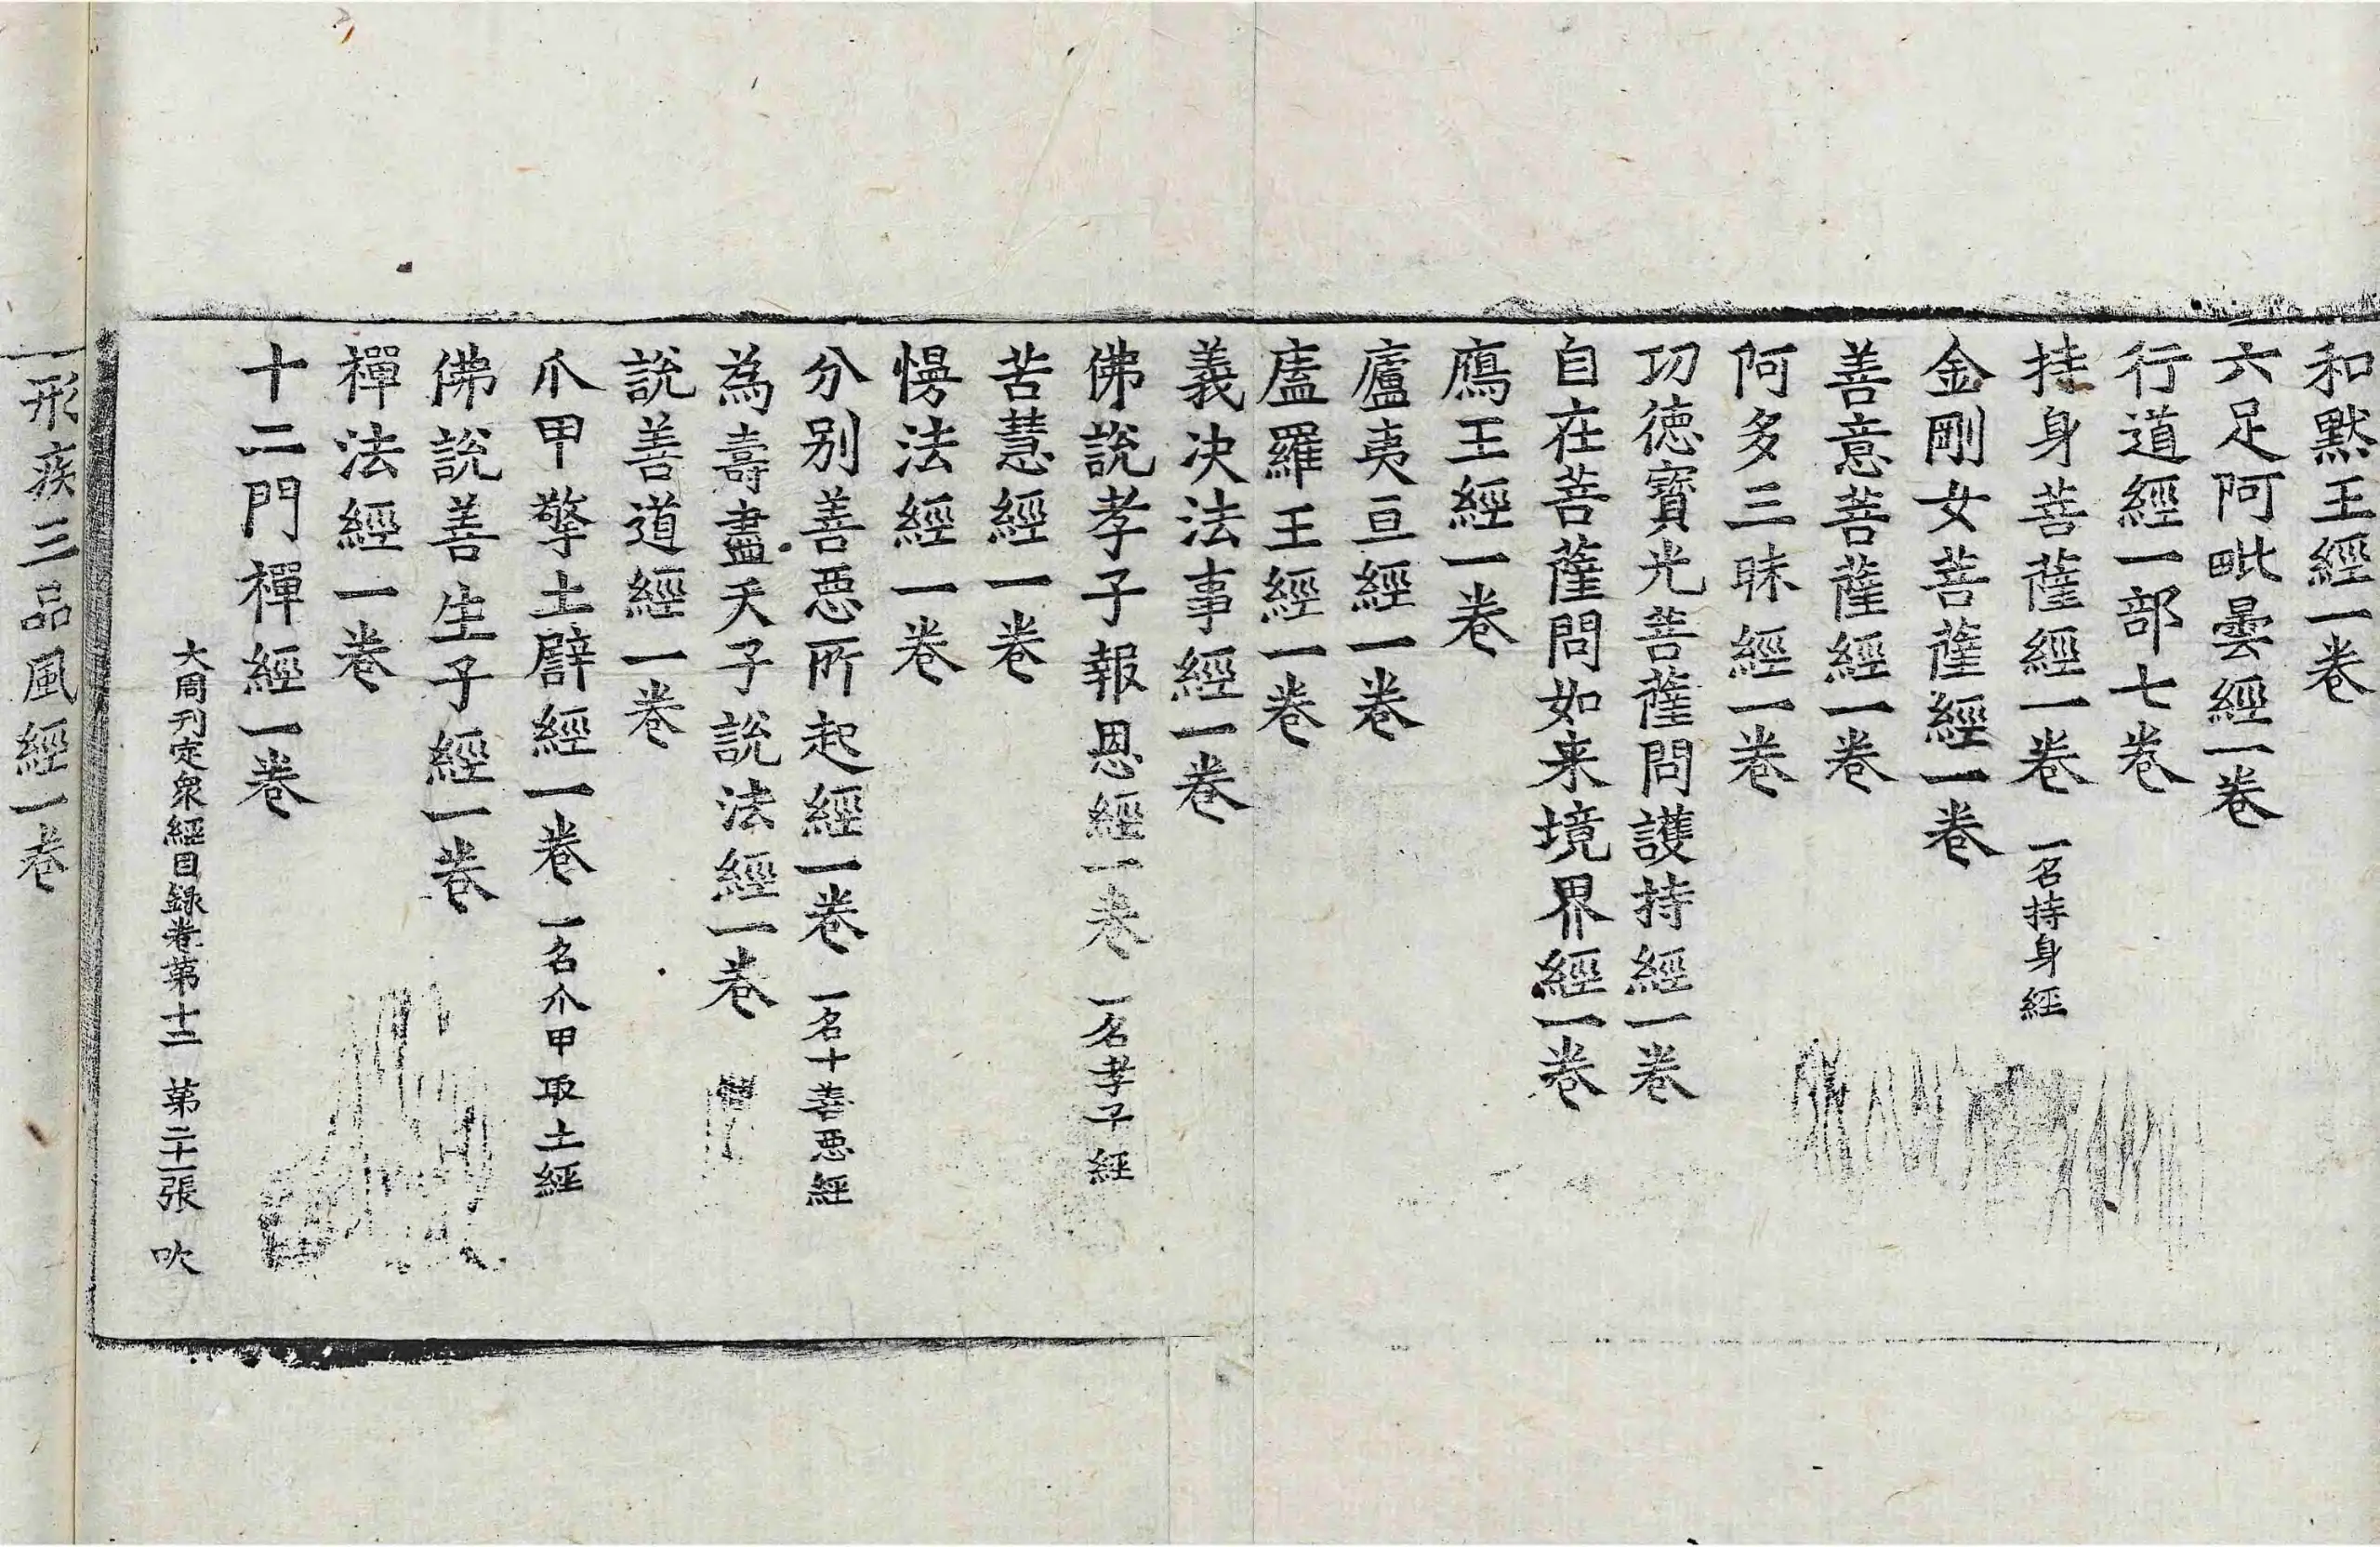 和黙王經一卷
六足阿毗曇經一卷
行道經一部七卷
持身菩薩經一卷 一名持身經
金剛女菩薩經一卷
善意菩薩經一卷
阿多三昧經一卷
功德寶光菩薩問護持經一卷
自在菩薩問如来境界經一卷
鴈王經一卷
廬夷亘經一卷
廅羅王經一卷
義决法事經一卷
佛說孝子報恩經一卷 一名孝子經
苦慧經一卷
慢法經一卷
分别善惡所起經一卷 一名十善惡經
為壽盡天子說法經一卷
說善道經一卷
爪甲擎土譬經一卷 一名爪甲取土經
佛說善生子經一卷
禪法經一卷
十二門禪經一卷
大周刋定衆經目録卷第十二 第二十一張 吹
形疾三品風經一卷